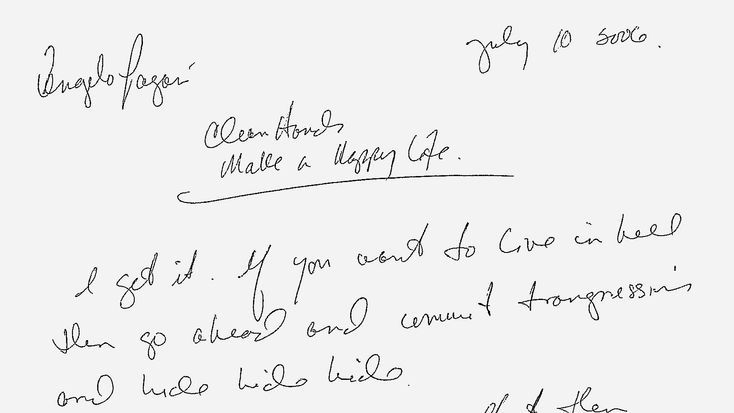 Angelo Pagan
July 10 2006.
Clean Hands
Make a Happy Life.
I get it. If you want to live in hell
then go ahead and commit trangressions
and hide hide hide.
then